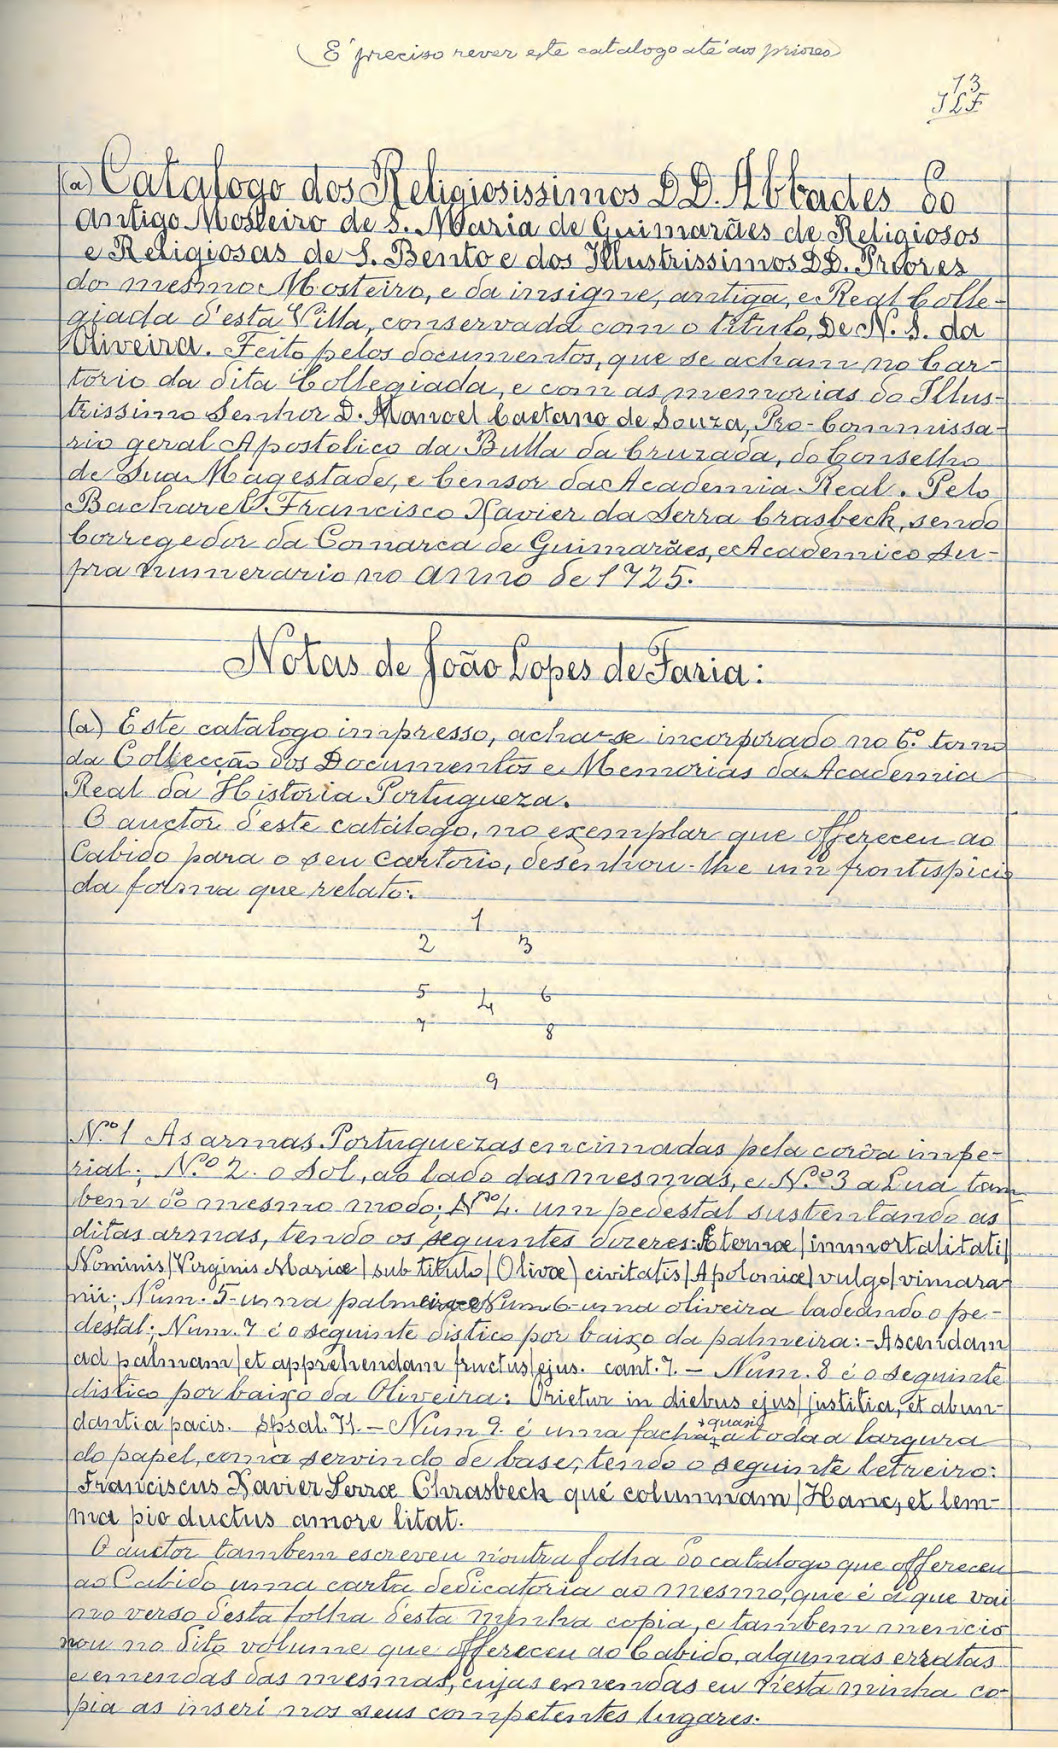 (É preciso rever este catalogo até aos priores)
13
JLF
(a) Catalogo dos Religiosissimos DD. Abbades do
antigo Mosteiro de S. Maria de Guimarães de Religiosos
e Religiosas de S. Bento e dos Illustrissimos DD. Priores
do mesmo Mosteiro, e da insigne, antiga, e Real Colle-
giada d'esta Villa, conservada com o titulo, De N. S. da
Oliveira. Feito pelos documentos, que se acham no Car-
torio da dita Collegiada, e com as memorias do Illus-
trissimo Senhor D. Manoel Caetano de Souza, Pro-Commissa-
rio geral Apostolico da Bulla da Cruzada, do Conselho
de Sua Magestade, e Censor da Academia Real. Pelo
Bacharel Francisco Xavier da Serra Crasbeck, sendo
Corregedor da Comarca de Guimarães, e Academico Su-
pra numerario no anno de 1725.
Notas de João Lopes de Faria:
(a) Este catalogo impresso, acha-se incorporado no 6.º tomo
da Collecção dos Documentos e Memorias da Academia
Real da Historia Portugueza.
O auctor d'este catálogo, no exemplar que offereceu ao
Cabido para o seu cartorio, desenhou-lhe um frontispicio
da forma que relato:
1
2 3
5 4 6
7 8
9
N.º 1 As armas Portuguezas encimadas pela corôa impe-
rial; N.º 2. o Sol, ao lado das mesmas, e N.º 3 a Lua tam
bem do mesmo modo; Nº 4. um pedestal sustentando as
ditas armas, tendo os seguintes dizeres: Æternæ | immortalitati |
Nominis | Virginis Mariæ | sub titulo | Olivæ | civitatis | Apoloniæ | vulgo | vimara
nii; Num. 5 - uma palmeira e Num 6 - uma oliveira ladeando o pe-
destal; Num. 7 é o seguinte distico por baixo da palmeira: - Ascendam
ad palmam | et apprehendam fructus | ejus. cant. 7. - Num. 8 é o seguinte
distico por baixo da Oliveira: Orietur in diebus ejus | justitia, et abun-
dantia pacis. psal. 71. - Num 9. é uma facha, quasi a toda a largura
do papel, como servindo de base, tendo o seguinte letreiro:
Franciscus Xavier Serræ Chrasbeck qué columnam | Hanc, et lem-
ma pio ductus amore litat.
O auctor tambem escreveu n'outra folha do catalogo que offereceu
ao Cabido uma carta dedicatoria ao mesmo, que é a que vai
no verso d'esta folha d'esta minha copia, e tambem mencio
nou no dito volume que offereceu ao Cabido, algumas erratas
e emendas das mesmas, cujas emendas eu n'esta minha co-
pia as inseri nos seus competentes lugares.